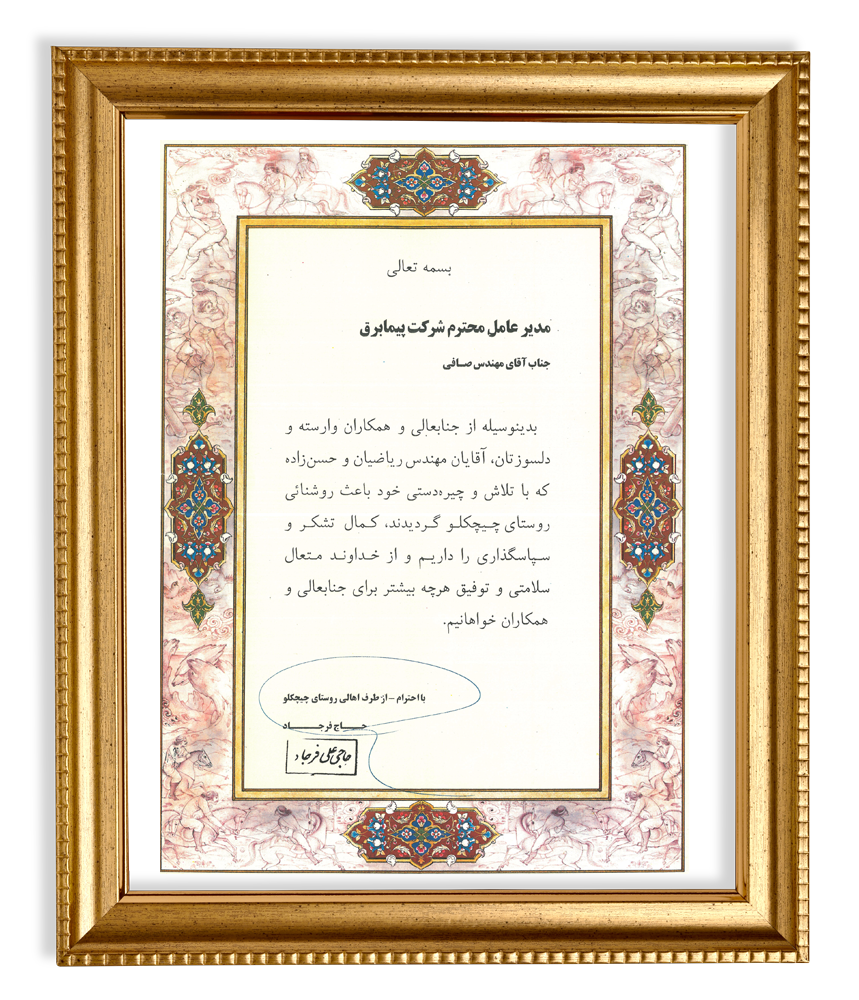 بسمه تعالی
مدیر عامل محترم شرکت پیمابرق
جناب آقای مهندس صافی
بدینوسیله از جنابعالی و همکاران وارسته و
دلسوزتان، آقایان مهندس ریاضیان و حسن‌زاده
که با تلاش و چیره‌دستی خود باعث روشنائی
روستای چیچکلو گردیدند، کمال تشکر و
سپاسگذاری را داریم و از خداوند متعال
سلامتی و توفیق هرچه بیشتر برای جنابعالی و
همکاران خواهانیم.
با احترام - از طرف اهالی روستای چیچکلو
حاج فرجاد
حاجی علی فرجاد